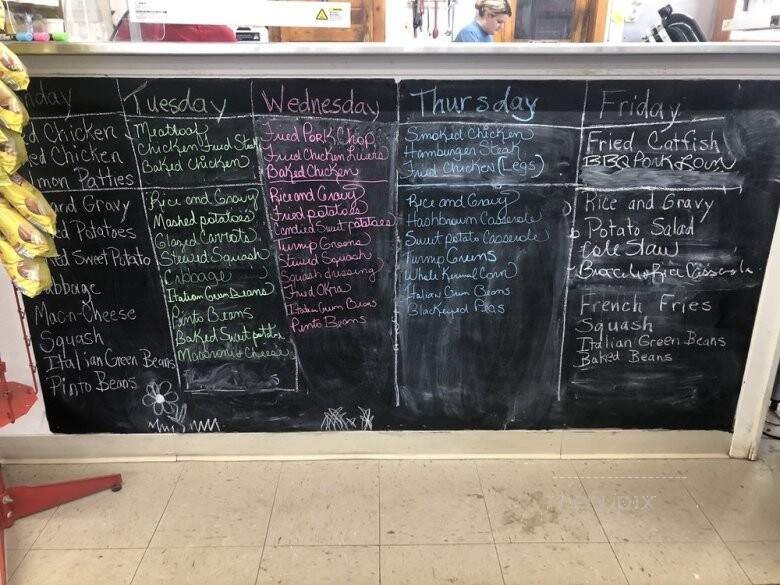 nday
d Chicken
ed Chicken
mon Patties
and Gravy
ed Potatoes
ed Sweet Potato
abbage
Macn-Cheese
Squash
Italian Green Beans
Pinto Beans
Tuesday
Meatloaf
Chicken Fried Steak
Baked Chicken
Rice and Gravy
Mashed potatoes
Glazed Carrots
Stewed Squash
Cabbage
Italian Green Beans
Pinto Beans
Baked Sweet potato
Macaroni & Cheese
Wednesday
Fried Pork Chop
Fried Chicken Livers
Baked Chicken
Rice and Gravy
Fried potatoes
Candied Sweet potatoes
Turnip Greens
Stewed Squash
Squash dressing
Fried Okra
Italian Green Beans
Pinto Beans
Thursday
Smoked Chicken
Hamburger Steak
Fried Chicken (Legs)
Rice and Gravy
Hashbrown Casserole
Sweet potato Casserole
Turnip Greens
Whole Kernel Corn
Italian Green Beans
Blackeyed Peas
Friday
Fried Catfish
BBQ Pork Loin
Rice and Gravy
Potato Salad
Cole Slaw
Broccoli & Rice Casserole
French Fries
Squash
Italian Green Beans
Baked Beans